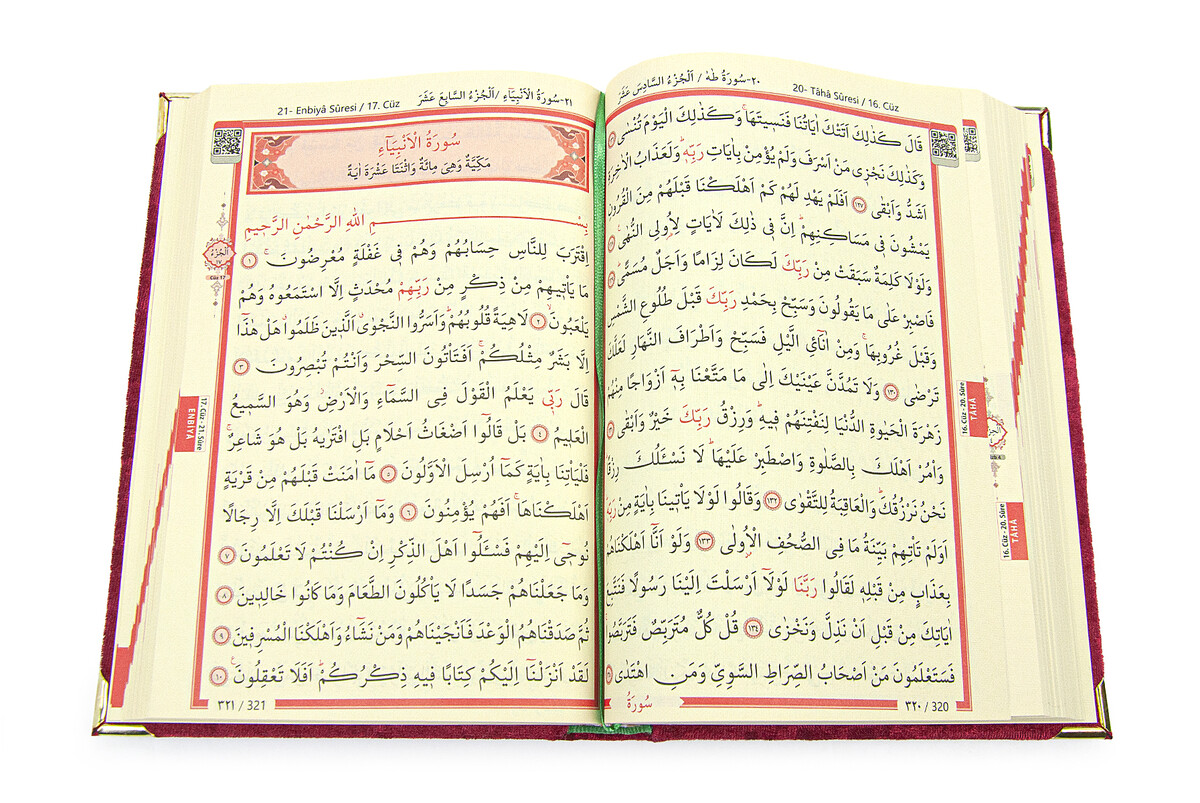 ٢٠-سُورَةُ طٰهٰ / اَلْجُزْءُ السَّادِسَ عَشَرَ
20- Tâhâ Sûresi / 16. Cüz
قَالَ كَذٰلِكَ اَتَتْكَ اٰيَاتُنَا فَنَسٖيتَهَاۚ وَكَذٰلِكَ الْيَوْمَ تُنْسٰى
وَكَذٰلِكَ نَجْزٖى مَنْ اَسْرَفَ وَلَمْ يُؤْمِنْ بِاٰيَاتِ رَبِّهٖؕ وَلَعَذَابُ الْاٰخِرَةِ
اَشَدُّ وَاَبْقٰى ﴿١٢٧﴾ اَفَلَمْ يَهْدِ لَهُمْ كَمْ اَهْلَكْنَا قَبْلَهُمْ مِنَ الْقُرُونِ
يَمْشُونَ فٖى مَسَاكِنِهِمْؕ اِنَّ فٖى ذٰلِكَ لَاٰيَاتٍ لِاُولِى النُّهٰى
وَلَوْلَا كَلِمَةٌ سَبَقَتْ مِنْ رَبِّكَ لَكَانَ لِزَامًا وَاَجَلٌ مُسَمًّى
فَاصْبِرْ عَلٰى مَا يَقُولُونَ وَسَبِّحْ بِحَمْدِ رَبِّكَ قَبْلَ طُلُوعِ الشَّمْسِ
وَقَبْلَ غُرُوبِهَاۚ وَمِنْ اٰنَٓائِ الَّيْلِ فَسَبِّحْ وَاَطْرَافَ النَّهَارِ لَعَلَّكَ
تَرْضٰى ﴿١٣٠﴾ وَلَا تَمُدَّنَّ عَيْنَيْكَ اِلٰى مَا مَتَّعْنَا بِهٖٓ اَزْوَاجًا مِنْهُمْ
زَهْرَةَ الْحَيٰوةِ الدُّنْيَا لِنَفْتِنَهُمْ فٖيهِؕ وَرِزْقُ رَبِّكَ خَيْرٌ وَاَبْقٰى
وَأْمُرْ اَهْلَكَ بِالصَّلٰوةِ وَاصْطَبِرْ عَلَيْهَاؕ لَا نَسْـَٔلُكَ رِزْقًا
نَحْنُ نَرْزُقُكَؕ وَالْعَاقِبَةُ لِلتَّقْوٰى ﴿١٣٢﴾ وَقَالُوا لَوْلَا يَأْتٖينَا بِاٰيَةٍ مِنْ رَبِّهٖ
اَوَلَمْ تَأْتِهِمْ بَيِّنَةُ مَا فِى الصُّحُفِ الْاُولٰى ﴿١٣٣﴾ وَلَوْ اَنَّٓا اَهْلَكْنَاهُمْ
بِعَذَابٍ مِنْ قَبْلِهٖ لَقَالُوا رَبَّنَا لَوْلَٓا اَرْسَلْتَ اِلَيْنَا رَسُولًا فَنَتَّبِعَ
اٰيَاتِكَ مِنْ قَبْلِ اَنْ نَذِلَّ وَنَخْزٰى ﴿١٣٤﴾ قُلْ كُلٌّ مُتَرَبِّصٌ فَتَرَبَّصُوا
فَسَتَعْلَمُونَ مَنْ اَصْحَابُ الصِّرَاطِ السَّوِىِّ وَمَنِ اهْتَدٰى
سُورَةُ
٣٢٠ / 320
16. Cüz - 20. Sûre
TÂHÂ
16. Cüz - 20. Sûre
TÂHÂ
21- Enbiyâ Sûresi / 17. Cüz
٢١-سُورَةُ الْاَنْبِيَٓاءِ /اَلْجُزْءُ السَّابِعَ عَشَرَ
سُورَةُ الْاَنْبِيَٓاءِ
مَكِّيَّةٌ وَهِىَ مِائَةٌ وَاثْنَتَا عَشْرَةَ اٰيَةً
بِسْمِ اللّٰهِ الرَّحْمٰنِ الرَّحٖيمِ
اِقْتَرَبَ لِلنَّاسِ حِسَابُهُمْ وَهُمْ فٖى غَفْلَةٍ مُعْرِضُونَۚ ﴿١﴾
مَا يَأْتٖيهِمْ مِنْ ذِكْرٍ مِنْ رَبِّهِمْ مُحْدَثٍ اِلَّا اسْتَمَعُوهُ وَهُمْ
يَلْعَبُونَۙ ﴿٢﴾ لَاهِيَةً قُلُوبُهُمْؕ وَاَسَرُّوا النَّجْوٰىۗ اَلَّذٖينَ ظَلَمُواۗ هَلْ هٰذَٓا
اِلَّا بَشَرٌ مِثْلُكُمْۚ اَفَتَأْتُونَ السِّحْرَ وَاَنْتُمْ تُبْصِرُونَ ﴿٣﴾
قَالَ رَبّٖى يَعْلَمُ الْقَوْلَ فِى السَّمَٓاءِ وَالْاَرْضِؗ وَهُوَ السَّمٖيعُ
الْعَلٖيمُ ﴿٤﴾ بَلْ قَالُٓوا اَضْغَاثُ اَحْلَامٍ بَلِ افْتَرٰيهُ بَلْ هُوَ شَاعِرٌۚ
فَلْيَأْتِنَا بِاٰيَةٍ كَمَٓا اُرْسِلَ الْاَوَّلُونَ ﴿٥﴾ مَٓا اٰمَنَتْ قَبْلَهُمْ مِنْ قَرْيَةٍ
اَهْلَكْنَاهَاۚ اَفَهُمْ يُؤْمِنُونَ ﴿٦﴾ وَمَٓا اَرْسَلْنَا قَبْلَكَ اِلَّا رِجَالًا
نُوحٖٓى اِلَيْهِمْ فَسْـَٔلُٓوا اَهْلَ الذِّكْرِ اِنْ كُنْتُمْ لَا تَعْلَمُونَ ﴿٧﴾
وَمَا جَعَلْنَاهُمْ جَسَدًا لَا يَأْكُلُونَ الطَّعَامَ وَمَا كَانُوا خَالِدٖينَ ﴿٨﴾
ثُمَّ صَدَقْنَاهُمُ الْوَعْدَ فَاَنْجَيْنَاهُمْ وَمَنْ نَشَٓاءُ وَاَهْلَكْنَا الْمُسْرِفٖينَ ﴿٩﴾
لَقَدْ اَنْزَلْنَٓا اِلَيْكُمْ كِتَابًا فٖيهِ ذِكْرُكُمْؕ اَفَلَا تَعْقِلُونَ۟ ﴿١٠﴾
٣٢١ / 321
اَلْجُزْءُ
١٧
Cüz 17
17. Cüz - 21. Sûre
ENBİYÂ